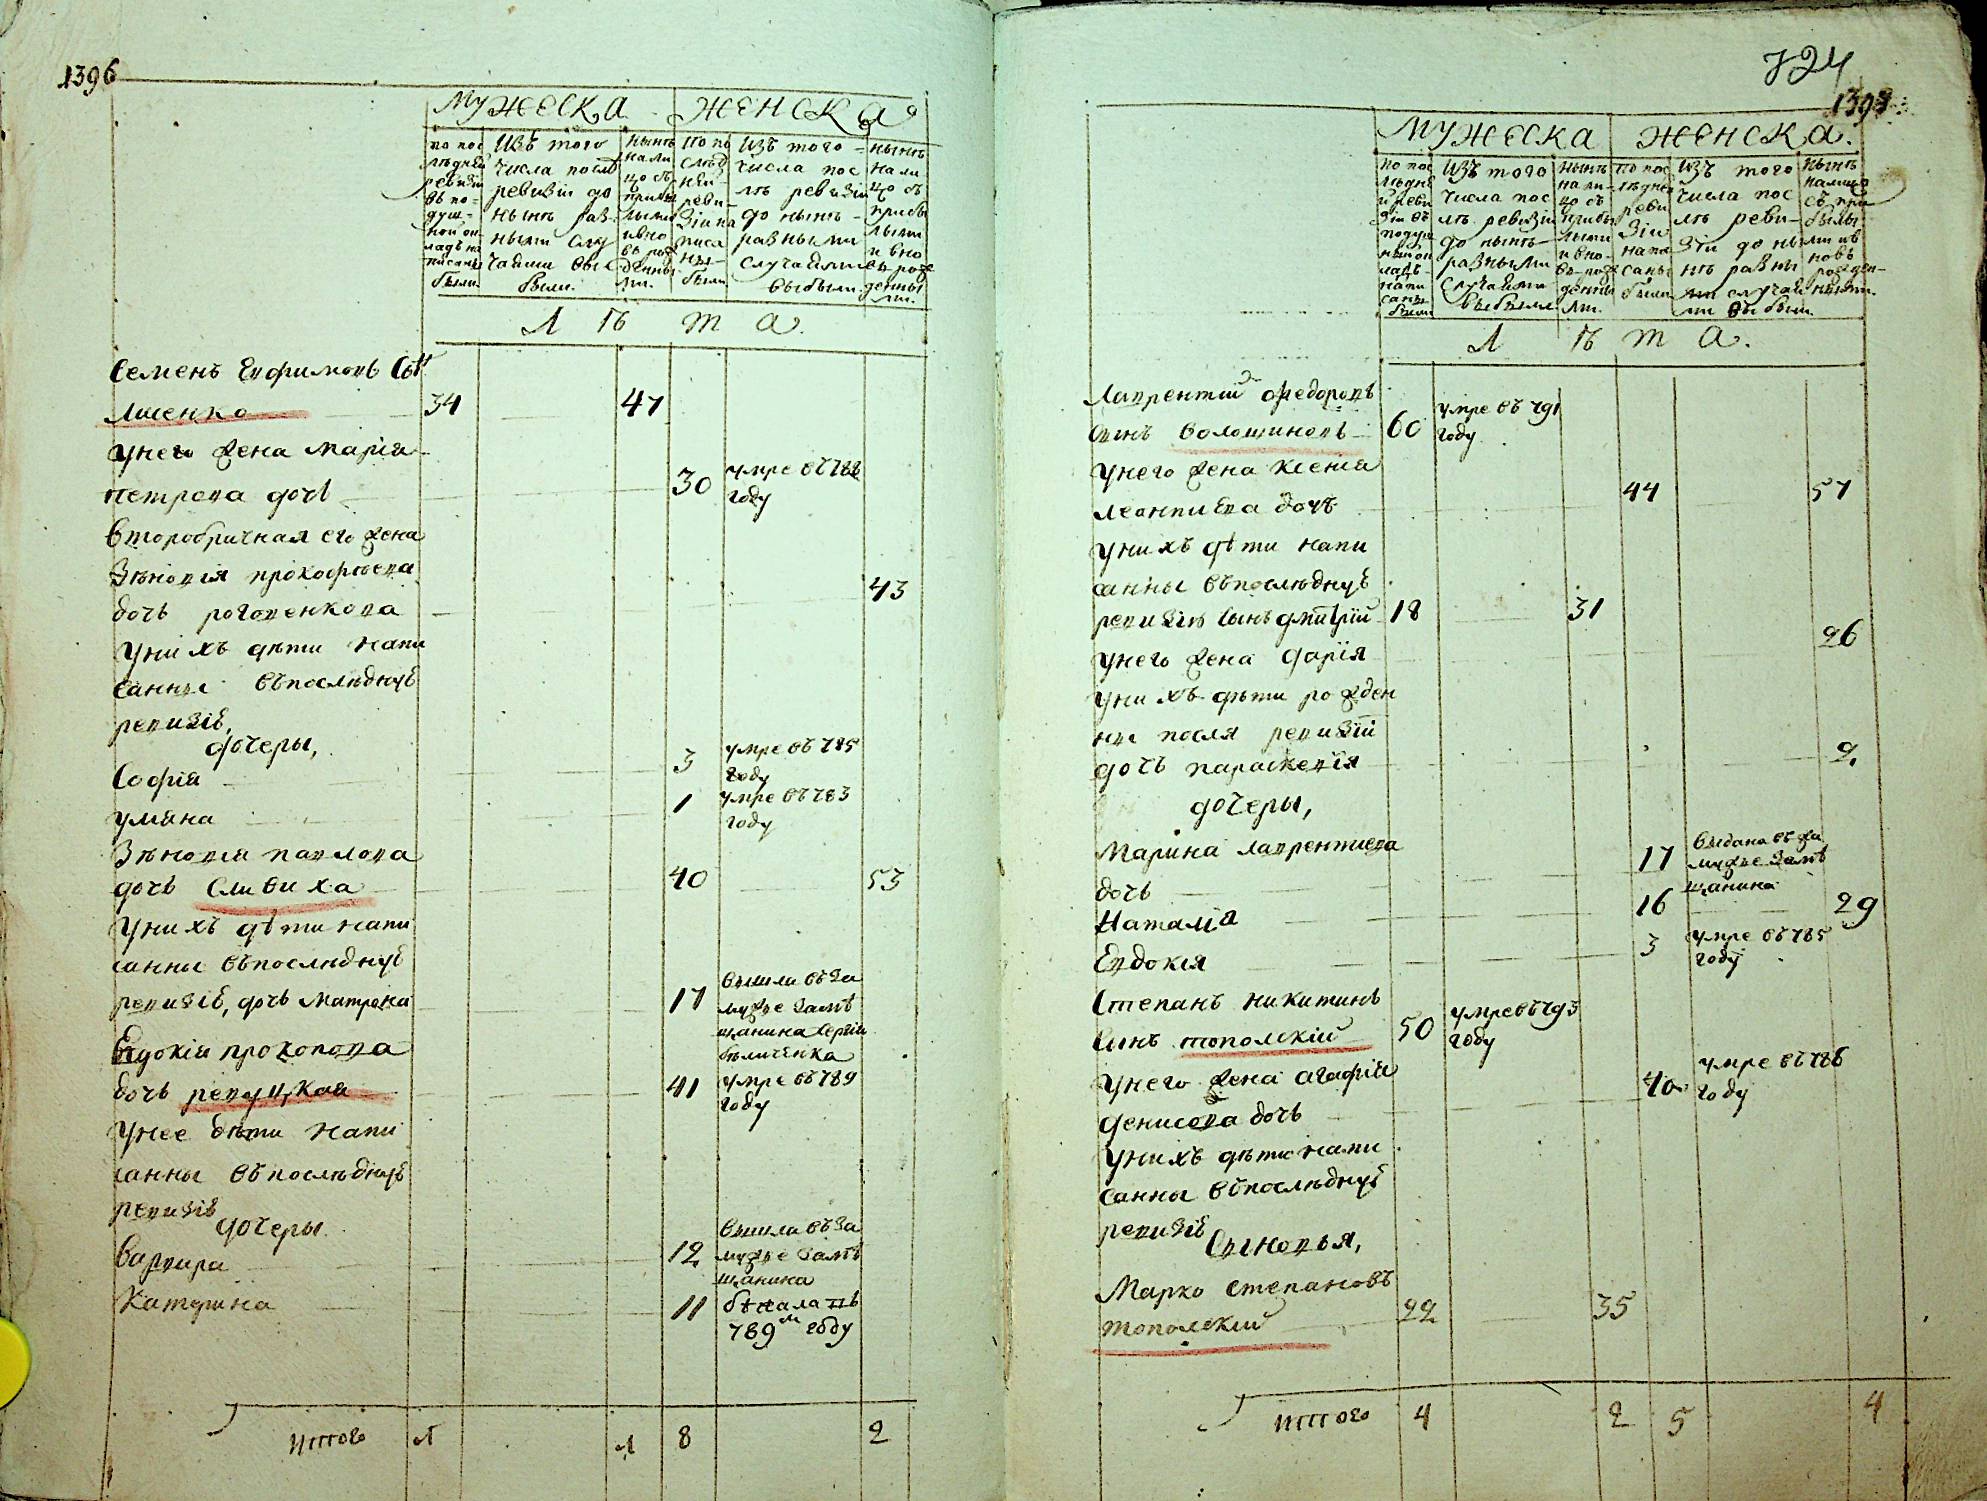 1396
МУЖЕСКА ЖЕНСКА
по пос
лѣдней
ревизіи
въ по-
душ-
ной ок-
ладъ на
писаны
были
изъ того
числа послѣ
ревизіи до
нынѣ раз-
ными слу
чайми вы
были.
нынѣ
нали
цо съ
прибы
лыми
и вно
въ рож
денны
ми.
по по
слѣд
ней
реви-
зіи на
писа
ны
были
изъ того
числа пос
лѣ ревизіи
до нынѣ
разными
случайми
выбыли.
нынѣ
нали
цо съ
прибы
лыми
и вно
въ рож
денны
ми.
Лѣта.
Семенъ Ефимовъ Сы
лченко 34 47
Унего жена Марія
Петрова дочь 30 умре въ 788
году
Второбрачная его жена
Зѣновія Прокофѣева
дочь Роговенкова 43
Унихъ дѣти напи
санны въпослѣднуѣ
ревизіѣ,
дочеры,
Софія 3 умре въ 785
году
Уляна 1 умре въ 783
году
Зѣновія Павлова
дочь Сливиха 40 53
Унихъ дѣти напи
санны въпослѣднуѣ
ревизіѣ, дочь Матрона 17 вышла въ за
мужъе замѣ
щанина Сергія
бѣличенка
Евдокія Прокопова
дочь Ревуцкая 41 умре въ 789
году
Унее дѣти напи
санны въпослѣднуѣ
ревизіѣ
дочеры.
Варвара 12 вышла въ за
мужъе замѣ
щанина
Катерина 11 бѣжала въ
789м году
Итого 1 1 8 2
724
1397
МУЖЕСКА ЖЕНСКА.
по пос
лѣдне
й реви
зіи въ
подуш
ной ок
ладъ
напи
саны
были
изъ того
числа пос
лѣ ревизіи
до нынѣ
разными
случайми
выбыли
нынѣ
нали-
цо съ
прибы
лыми
и вно-
въ рож
денны
ми.
по пос
лѣдне
реви
зіи
напи
саны
были
изъ того
числа пос
лѣ реви-
зіи до ны
нѣ разны
ми случай
ми выбыли.
нынѣ
налицо
съ при
былы
ми и в
новъ
рожден-
ными.
Лѣта.
Лаврентій Федоровъ
сынъ Волошиновъ 60 умре въ 791
году
Унего жена Ксенія
Леонтиева дочь 44 57
Унихъ дѣти напи
санны въпослѣднуѣ
ревизіѣ сынъ Дмитрій 18 31
Унего жена Дарія 26
Унихъ дѣти рожден
ны посля ревизій
дочь Параскевія 2.
дочеры,
Марина Лаврентиева
дочь 17 выдана въ за
мужъе замѣ
щанина
Наталія 16 29
Евдокія 3 умре въ 785
году
Степанъ Никитинъ
сынъ Топольскій 50 умре въ 793
году
Унего жена Агафія
Денисова дочь 40 умре въ 786
году
Унихъ дѣти напи
санны въпослѣднуѣ
ревизіѣ
Сыновья,
Марко Степановъ
Топольский 22 35
Итого 4 2 5 4